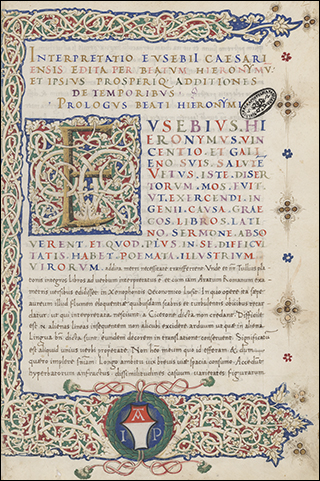 INTERPRETATIO EVSEBII CAESARI
ENSIS EDITA PER BIATVM HIERONYMV
ET IPSIVS PROSPERIQ ADDITIONES
DE TEMPORIBVS
PROLOGVS BEATI HIERONYMI
EVSEBIVS HI
ERONYMVS VIN
CENTIO ET GALI
ENO SVIS SALVTE
VETVS ISTE DISER
TORVM MOS EVIT
VT EXERCENDI IN
GENII CAVSA GRAE
COS LIBROS LATI
NO SERMONE ABSO
VERENT ET QVOD PLVS IN SE DIFFICV
TATIS HABET POEMATA ILLVSTRIVM
VIRORVM addita metri necessitate transferrent Unde et Tullius pla
tonis integros libros ad verbum interpretatus
metris versibus edidisset in Xenophontis Oeconomico lusit In quo opere ita sepe
aureum illud flumen eloquentiae quibusdam scabris et turbulentis obicibus retar
datur ut qui interpretata nesciunt a Cicerone dicta non credant Difficile
est alienas lineas insequentem non alicubi excidere arduum ut quae in aliena
Lingua bene dicta sunt eundem decorem in translatione conservent Significatum
est aliquid unius verbi proprietate Non habeo meum quo id efferam
quaero implere sententiam Longo ambitu vix brevis viae spacia consumo Accedunt
hyperbatorum anfractus dissimilitudines casuum varietates figurarum
A
I P